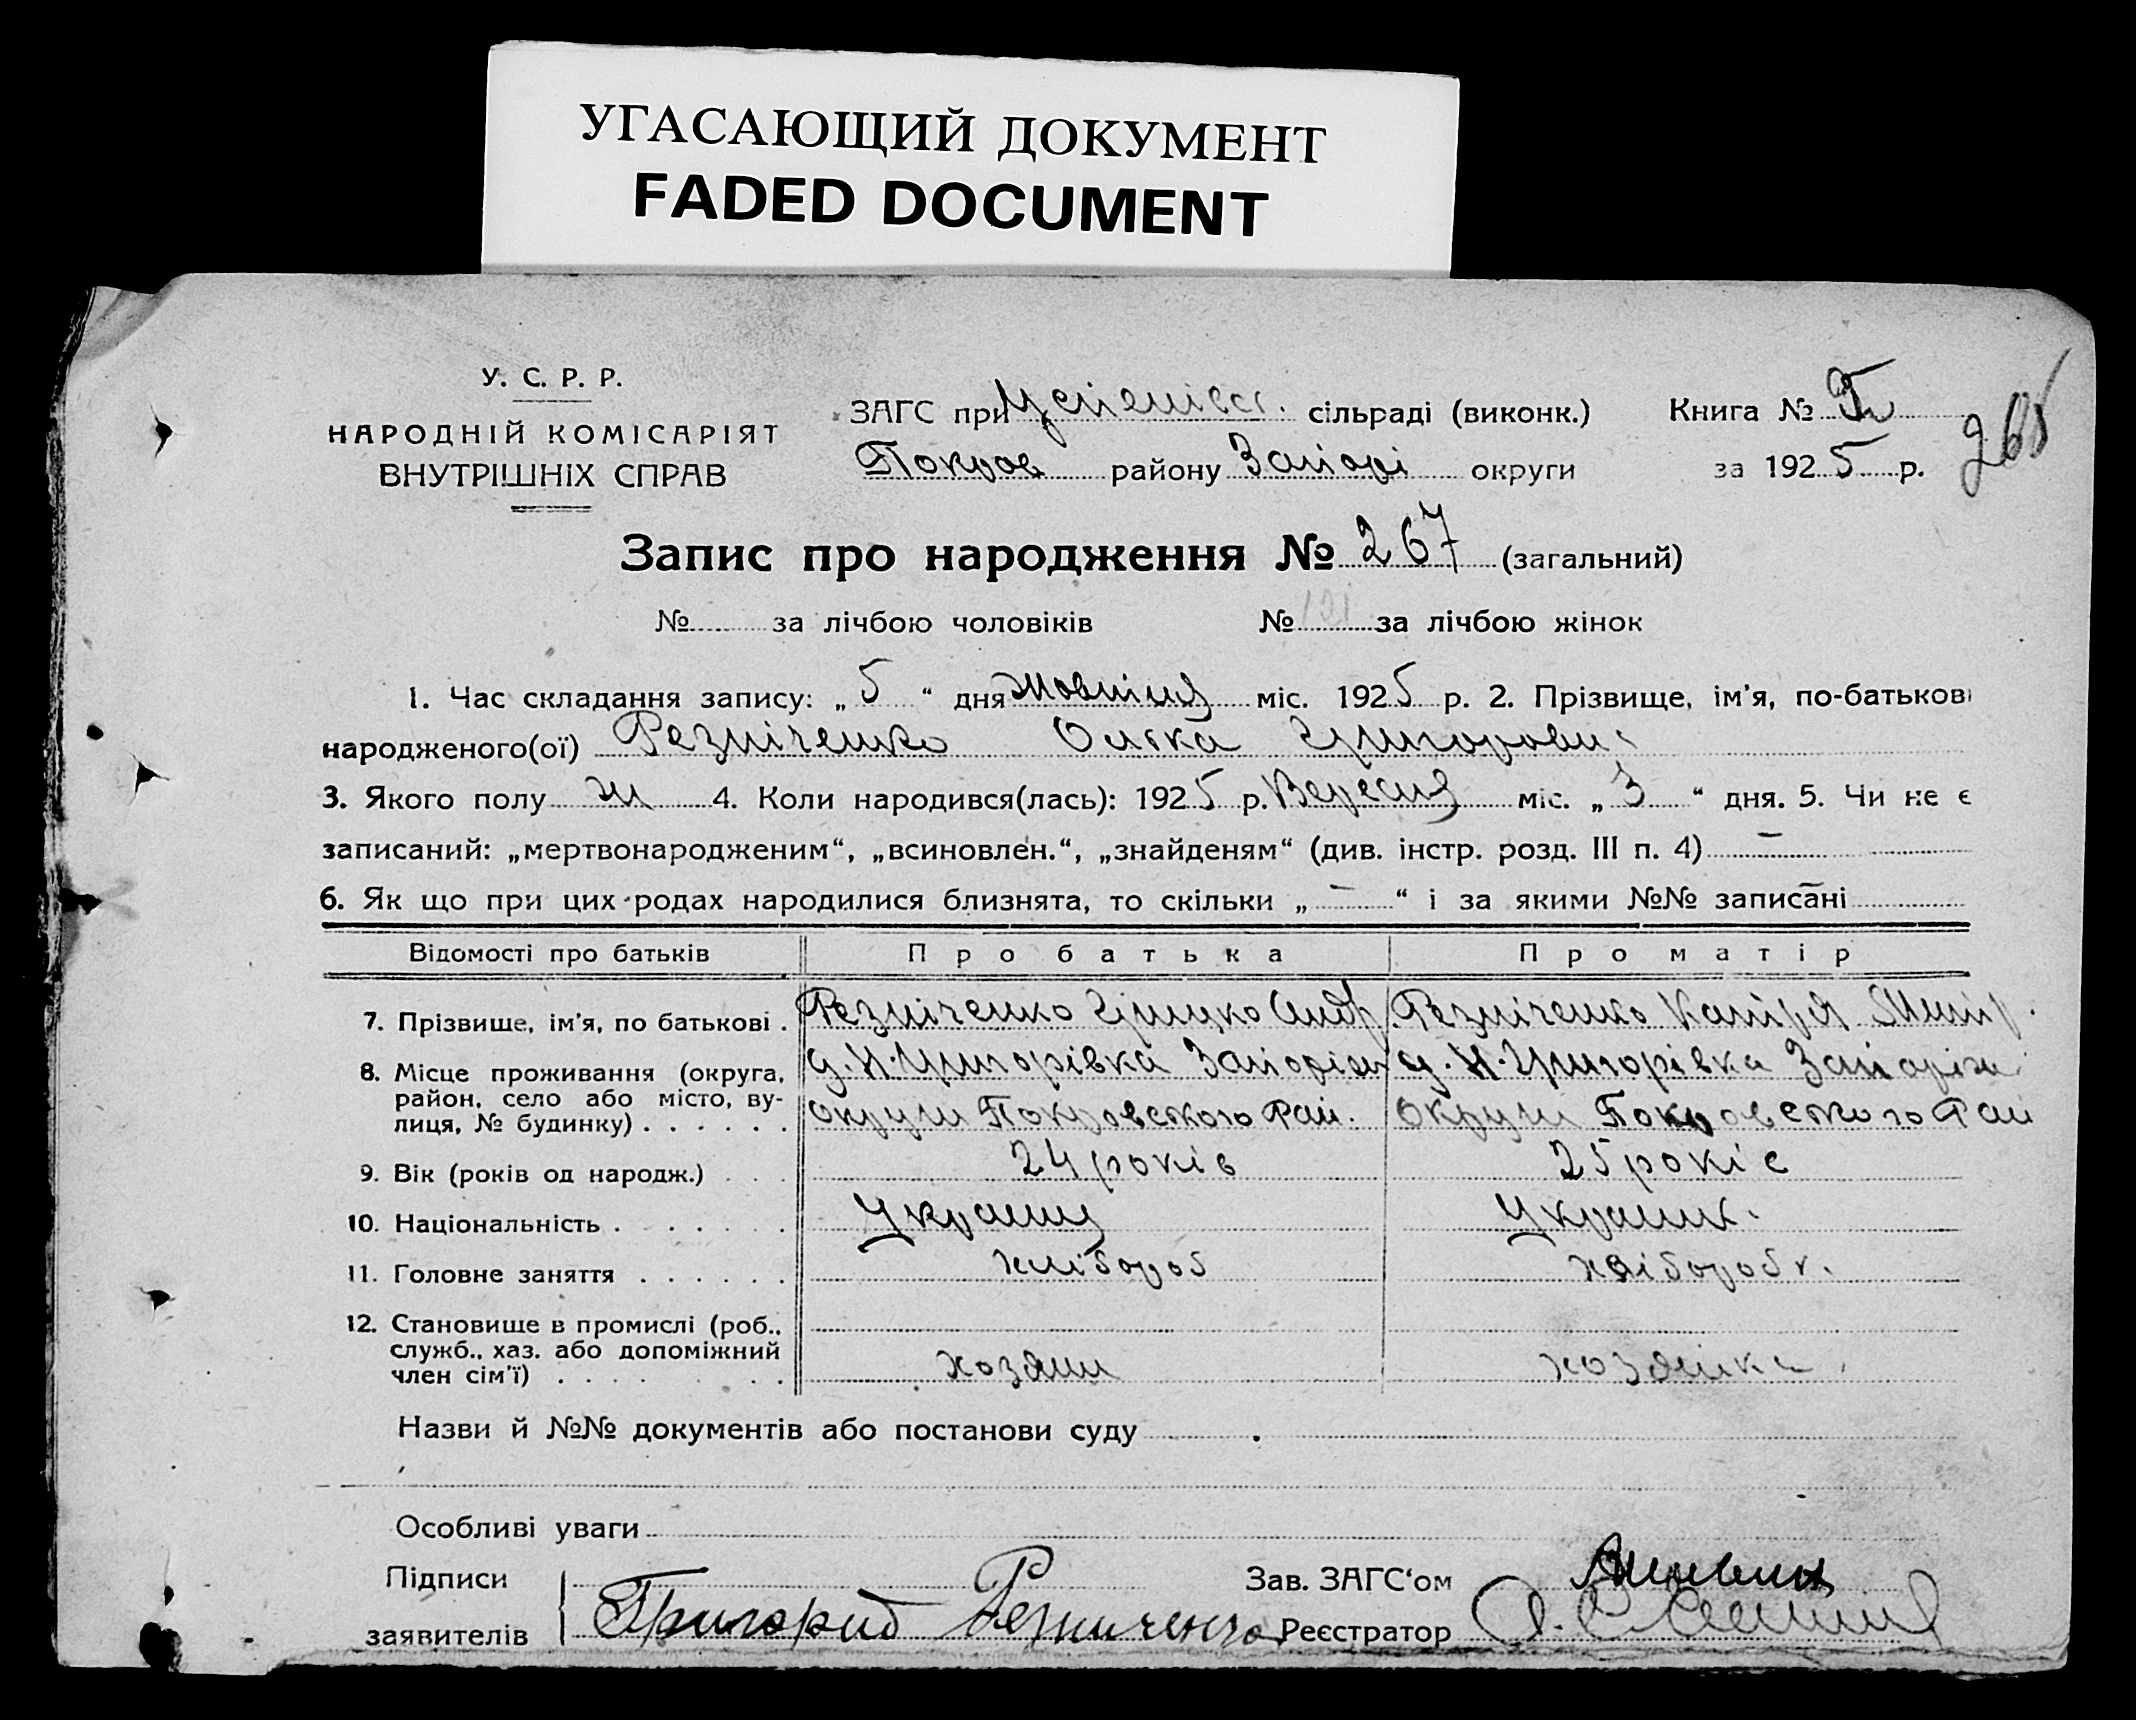 УГАСАЮЩИЙ ДОКУМЕНТ
FADED DOCUMENT
У. С. Р. Р.
НАРОДНІЙ КОМІСАРІЯТ
ВНУТРІШНІХ СПРАВ
ЗАГС при Успенівск. сільраді (виконк.)
Покров району Запорі округи
Книга №
за 1925 р.
Запис про народження № 267 (загальний)
№ за лічбою чоловіків № 121 за лічбою жінок
1. Час складання запису: „ 5 “ дня Жовтня міс. 1925 р. 2. Прізвище, ім’я, по-батькові
народженого(ої) Резніченко Олька Григорови
3. Якого полу ж 4. Коли народився(лась): 1925 р. Вересня міс. „ 3 “ дня. 5. Чи не є
записаний: „мертвонародженим“, „всиновлен.“, „знайденям“ (див. інстр. розд. III п. 4) —
6. Як що при цих родах народилися близнята, то скільки „ — “ і за якими №№ записані —
Відомості про батьків Про батька Про матір
7. Прізвище, ім’я, по батькові . Резніченко Грицко Андр. Резніченко Катіря
8. Місце проживання (округа, район, село або місто, вулиця, № будинку) . . . . . .
с. Н. Григорівка Запоріж с. Н. Григорівка Запоріж
округи Покровского Рай. округи Покровского Рай
9. Вік (років од народж.) . . . 24 років 25 років
10. Національність . . . . . . Украинц Украинк.
11. Головне заняття . . . . . . хлібороб хлібороб к.
12. Становище в промислі (роб., служб., хаз. або допоміжний член сім’ї) . . . . . . хозяин хозяйка
Назви й №№ документів або постанови суду
Особливі уваги
Підписи заявителів Григорий Резниченко
Зав. ЗАГС‘ом
Реєстратор